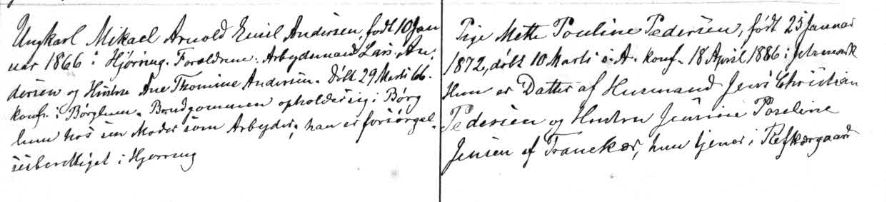 Ungkarl Mikael Arnold Emil Andersen, født 10 Jan
uar 1866 i Hjöring. Forældrene: Arbejdsmand Lars An
dersen og Hustru Ane Thomine Andersen. Döbt 29 Marts 66.
konf. i Börglum. Brudgommen opholder sig i Börg
lum hos sin Moder som Arbejder, han er forsörgel
sesberettiget i Hjörring
Pige Mette Pouline Pedersen, født 25 Januar
1872, døbt 10 Marts s. A. konf. 18 April 1886 i Jetsmark
Hun er Datter af Husmand Jens Christian
Pedersen og Hustru Jensine Poseline
Jensen af Tranekær, hun tjener i Refskærgaard